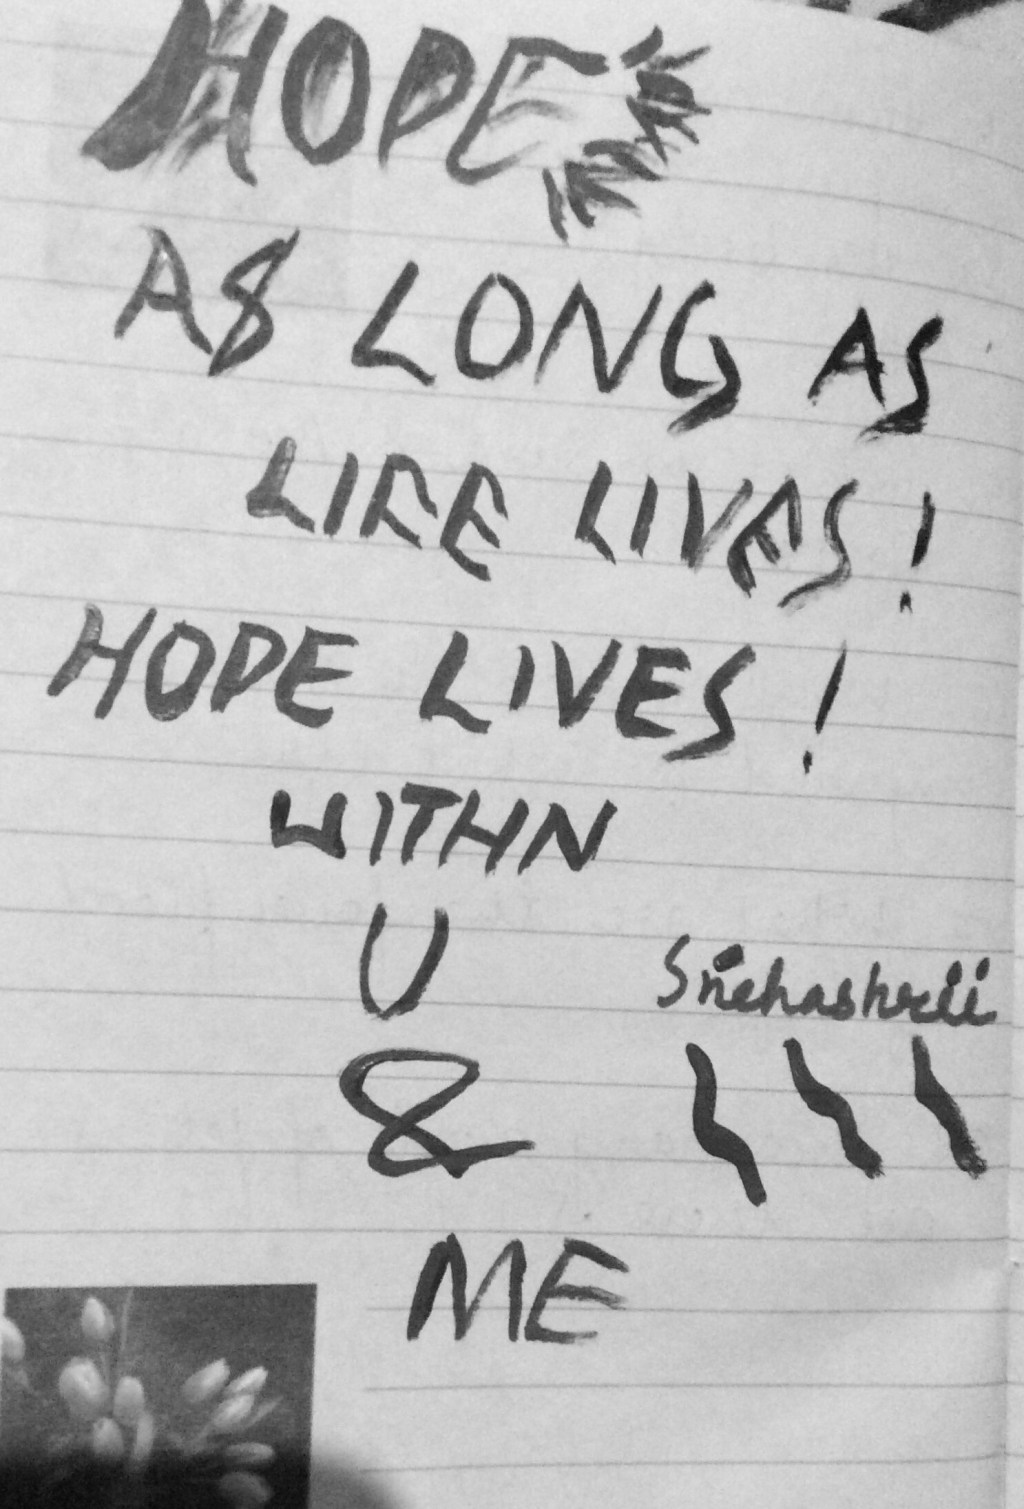 HOPE
AS LONG AS
LIFE LIVES!
HOPE LIVES!
WITHN
U
Snehashrii
&
ME